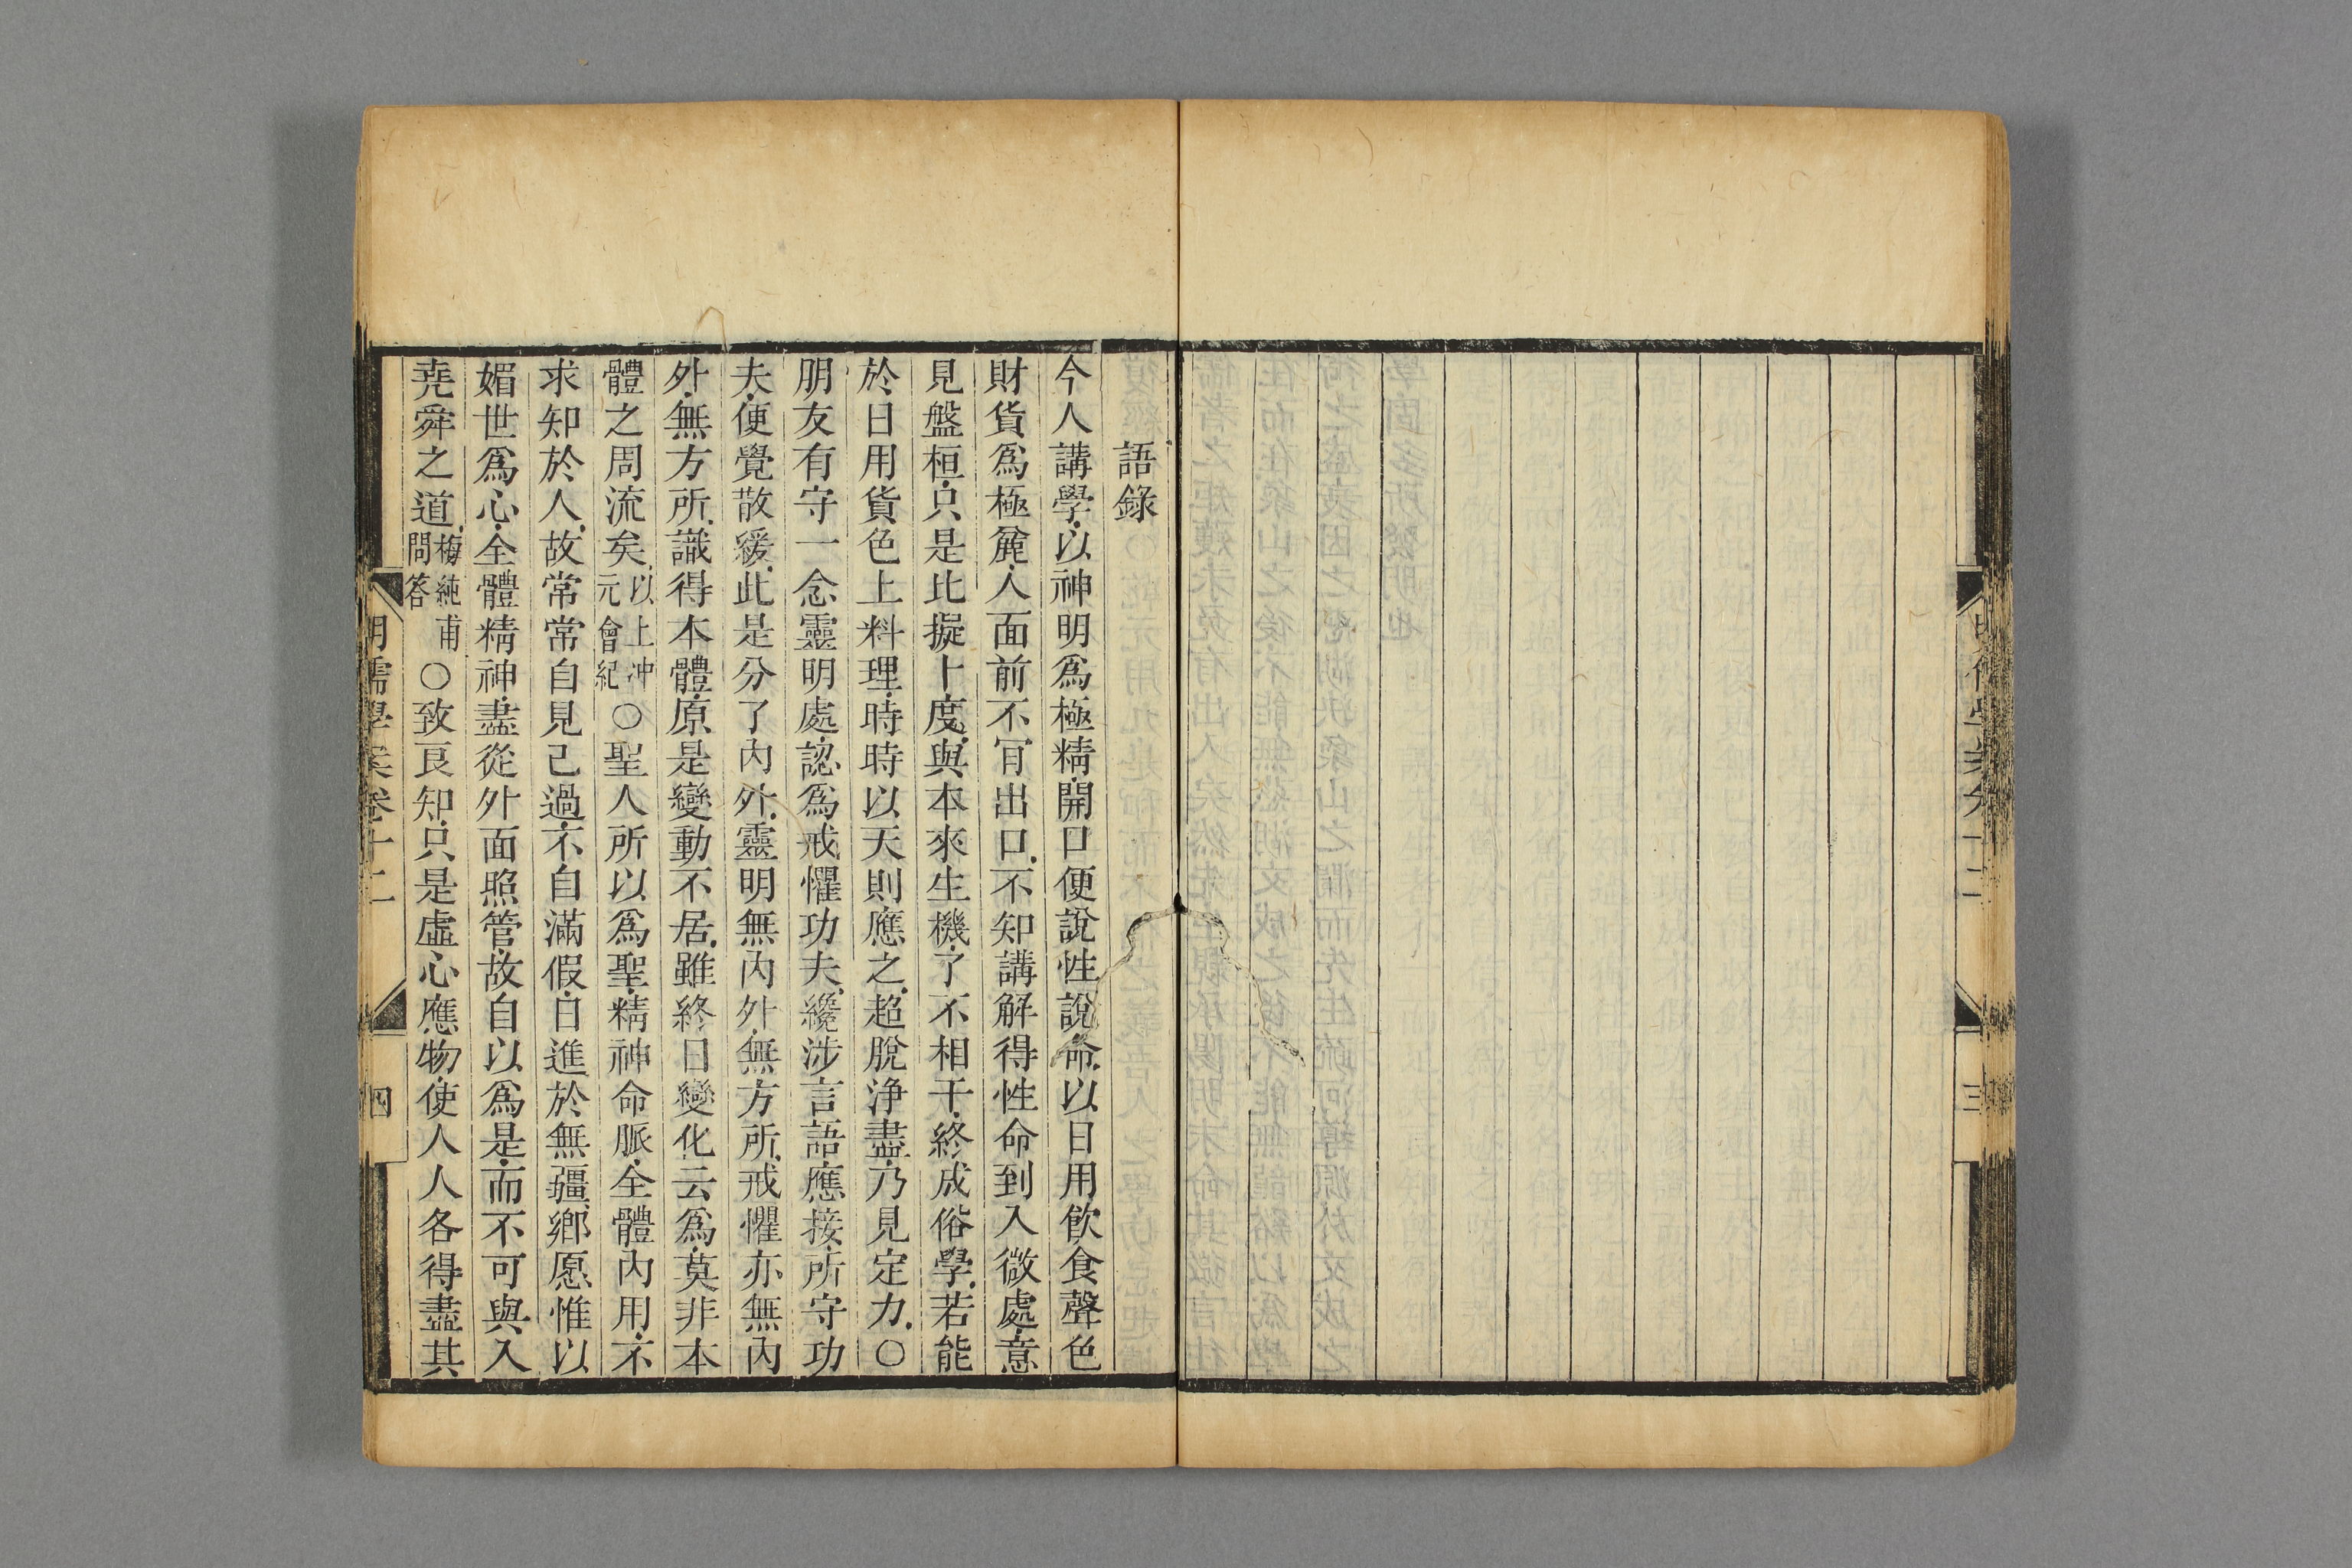 語錄
今人講學以神明爲極精開口便說性說命以日用飮食聲色
財貨爲極麄人面前不肎出口不知講解得性命到入微處意
見盤桓只是比擬卜度與本來生機了不相干終成俗學若能
於日用貨色上料理時時以天則應之超脫淨盡乃見定力○
朋友有守一念靈明處認爲戒懼功夫纔涉言語應接所守功
夫便覺散緩此是分了內外靈明無內外無方所戒懼亦無內
外無方所識得本體原是變動不居雖終日變化云爲莫非本
體之周流矣以上冲元會紀○聖人所以爲聖精神命脈全體內用不
求知於人故常常自見己過不自滿假日進於無疆鄕愿惟以
媚世爲心全體精神盡從外面照管故自以爲是而不可與入
堯舜之道梅純甫問答○致良知只是虛心應物使人人各得盡其
明儒學案卷十二
四